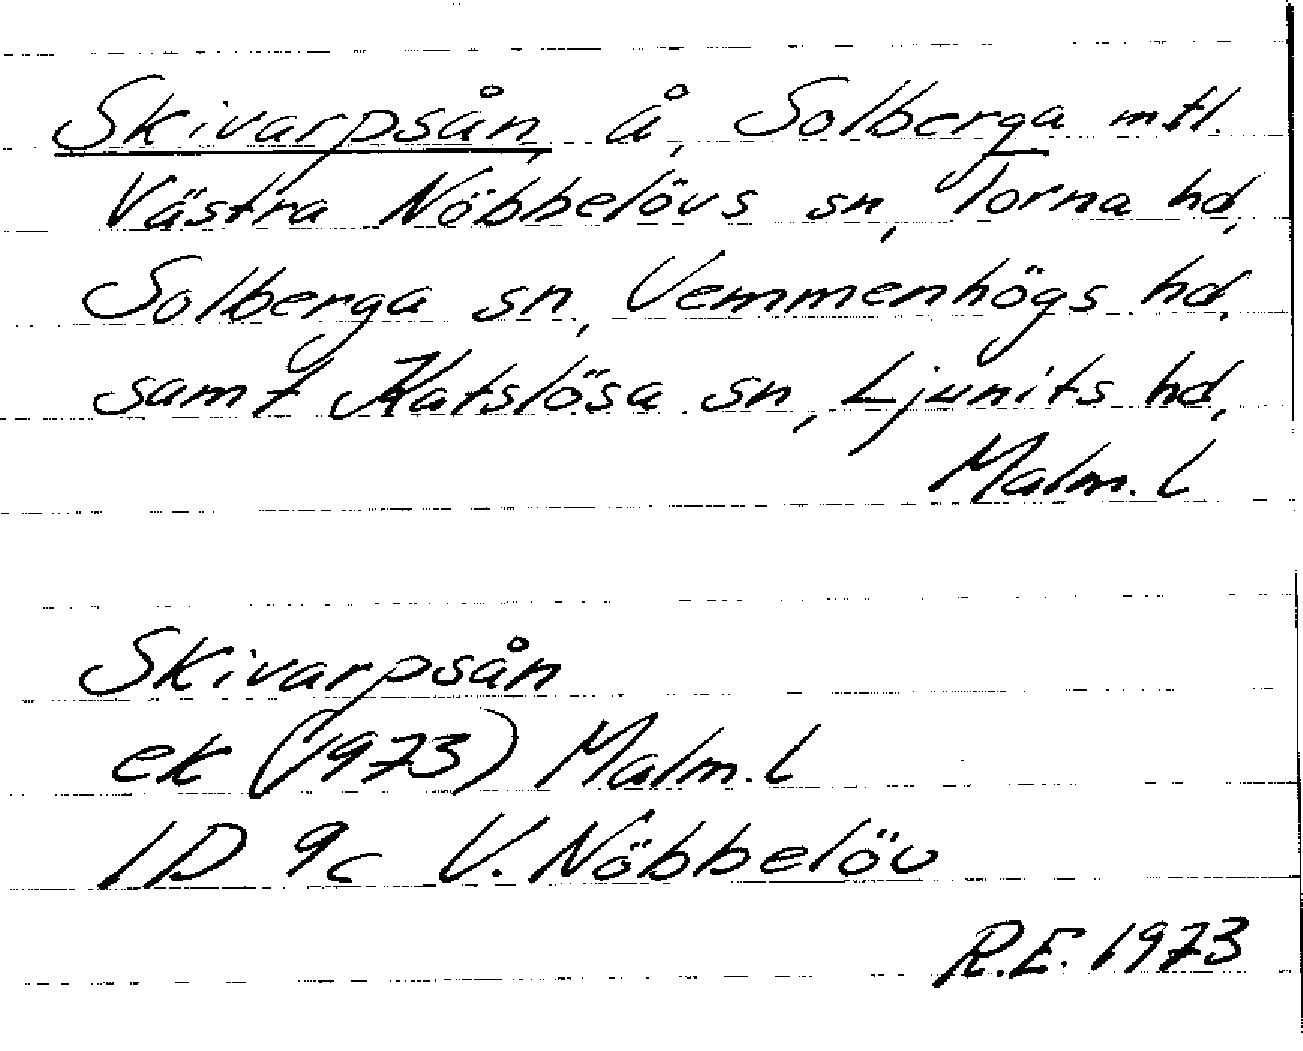 Skivarpsån, å, Solberga mtl.
Västra Nöbbelövs sn, Torna hd,
Solberga sn, Vemmenhögs hd.
samt Katslösa sn, Ljunits hd,
Malm. L
Skivarpsån
ek (1973) Malm. L
1D 9c V. Nöbbelöv
R.E. 1973